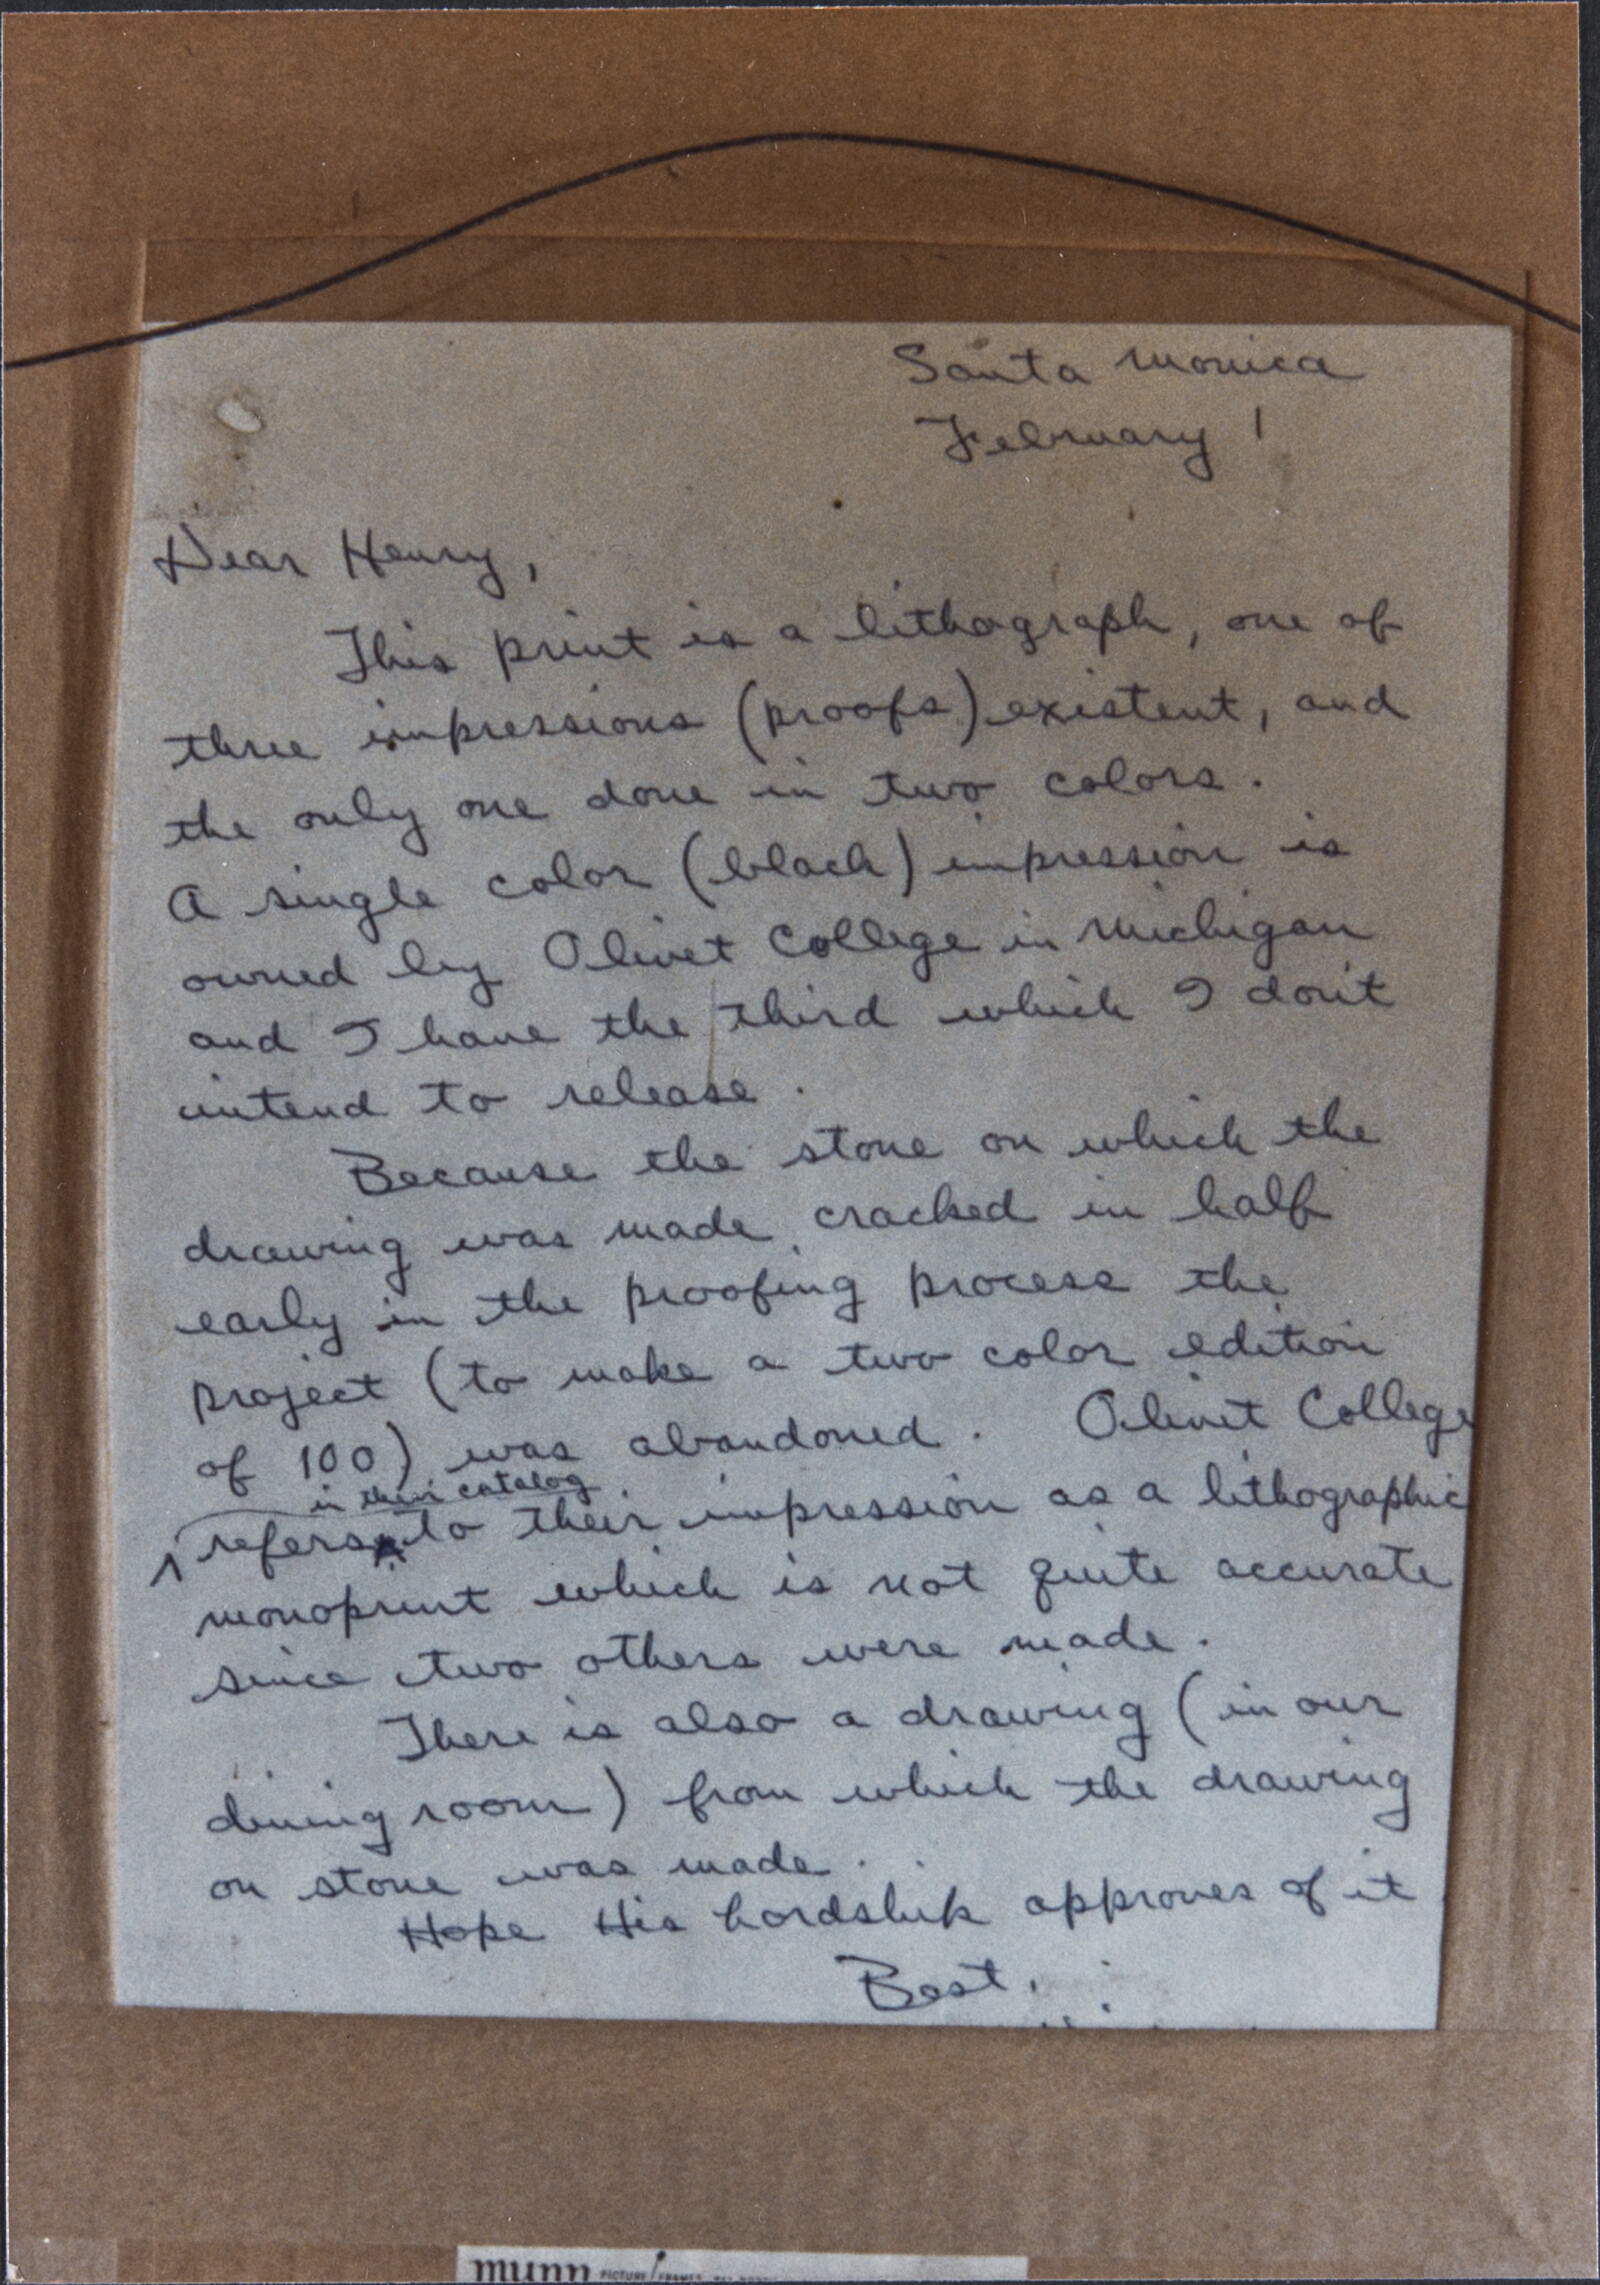 Santa Monica
February 1
Dear Henry,
This print is a lithograph, one of
three impressions (proofs) existent, and
the only one done in two colors.
A single color (black) impression is
owned by Olivet College in Michigan
and I have the third which I don't
intend to release.
Because the stone on which the
drawing was made cracked in half
early in the proofing process the
project (to make a two color edition
of 100) was abandoned. Olivet College
in their catalog
refers to their impression as a lithographic
monoprint which is not quite accurate
since two others were made.
There is also a drawing (in our
dining room) from which the drawing
on stone was made.
Hope His Lordship approves of it
Best,
munn PICTURE FRAMES